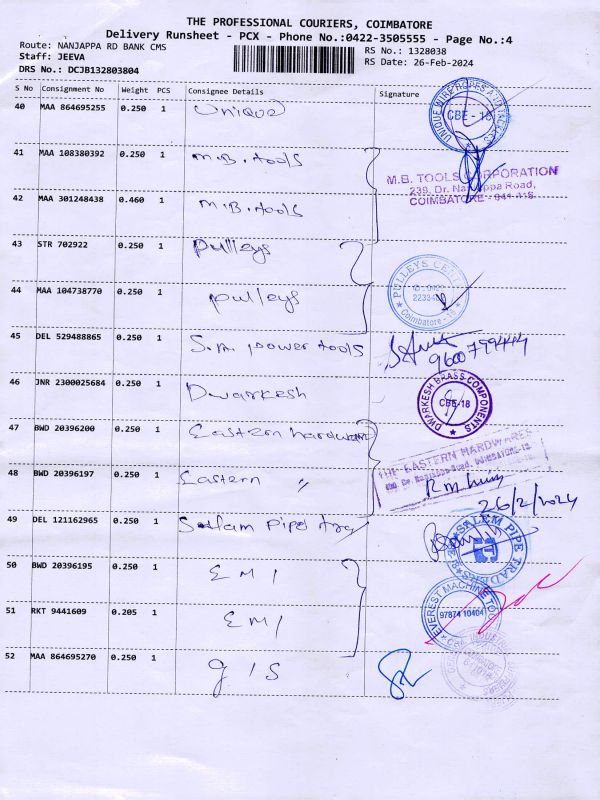 THE PROFESSIONAL COURIERS, COIMBATORE
Delivery Runsheet - PCX - Phone No.:0422-3505555 - Page No.:4
Route: NANJAPPA RD BANK CMS
RS No.: 1328038
Staff: JEEVA
RS Date: 26-Feb-2024
DRS No.: DCJB132803804
S No Consignment No Weight PCS Consignee Details Signature
40 MAA 864695255 0.250 1 Unique
UNIQUE WIRE ROPES
CBE - 18
41 MAA 108380392 0.250 1 M.B. tools
M.B. TOOLS CORPORATION
Road,
COIMBATORE
42 MAA 301248438 0.460 1 M.B. tools
43 STR 702922 0.250 1 pulleys
44 MAA 104738770 0.250 1 pulleys
PULLEYS
Coimbatore - 18
45 DEL 529488865 0.250 1 S.M. power tools
46 JNR 2300025684 0.250 1 Dwarkesh
DWARKESH BRASS COMPONENTS
CBE-18
47 BWD 20396200 0.250 1 Eastern hardware
THE EASTERN HARDWARES
48 BWD 20396197 0.250 1 Eastern "
26/2/2024
49 DEL 121162965 0.250 1 Pipe
SALEM PIPE TRADERS
50 BWD 20396195 0.250 1 EMI
EVEREST MACHINE TOOLS
97874 10404
51 RKT 9441609 0.205 1 EMI
52 MAA 864695270 0.250 1 G/S